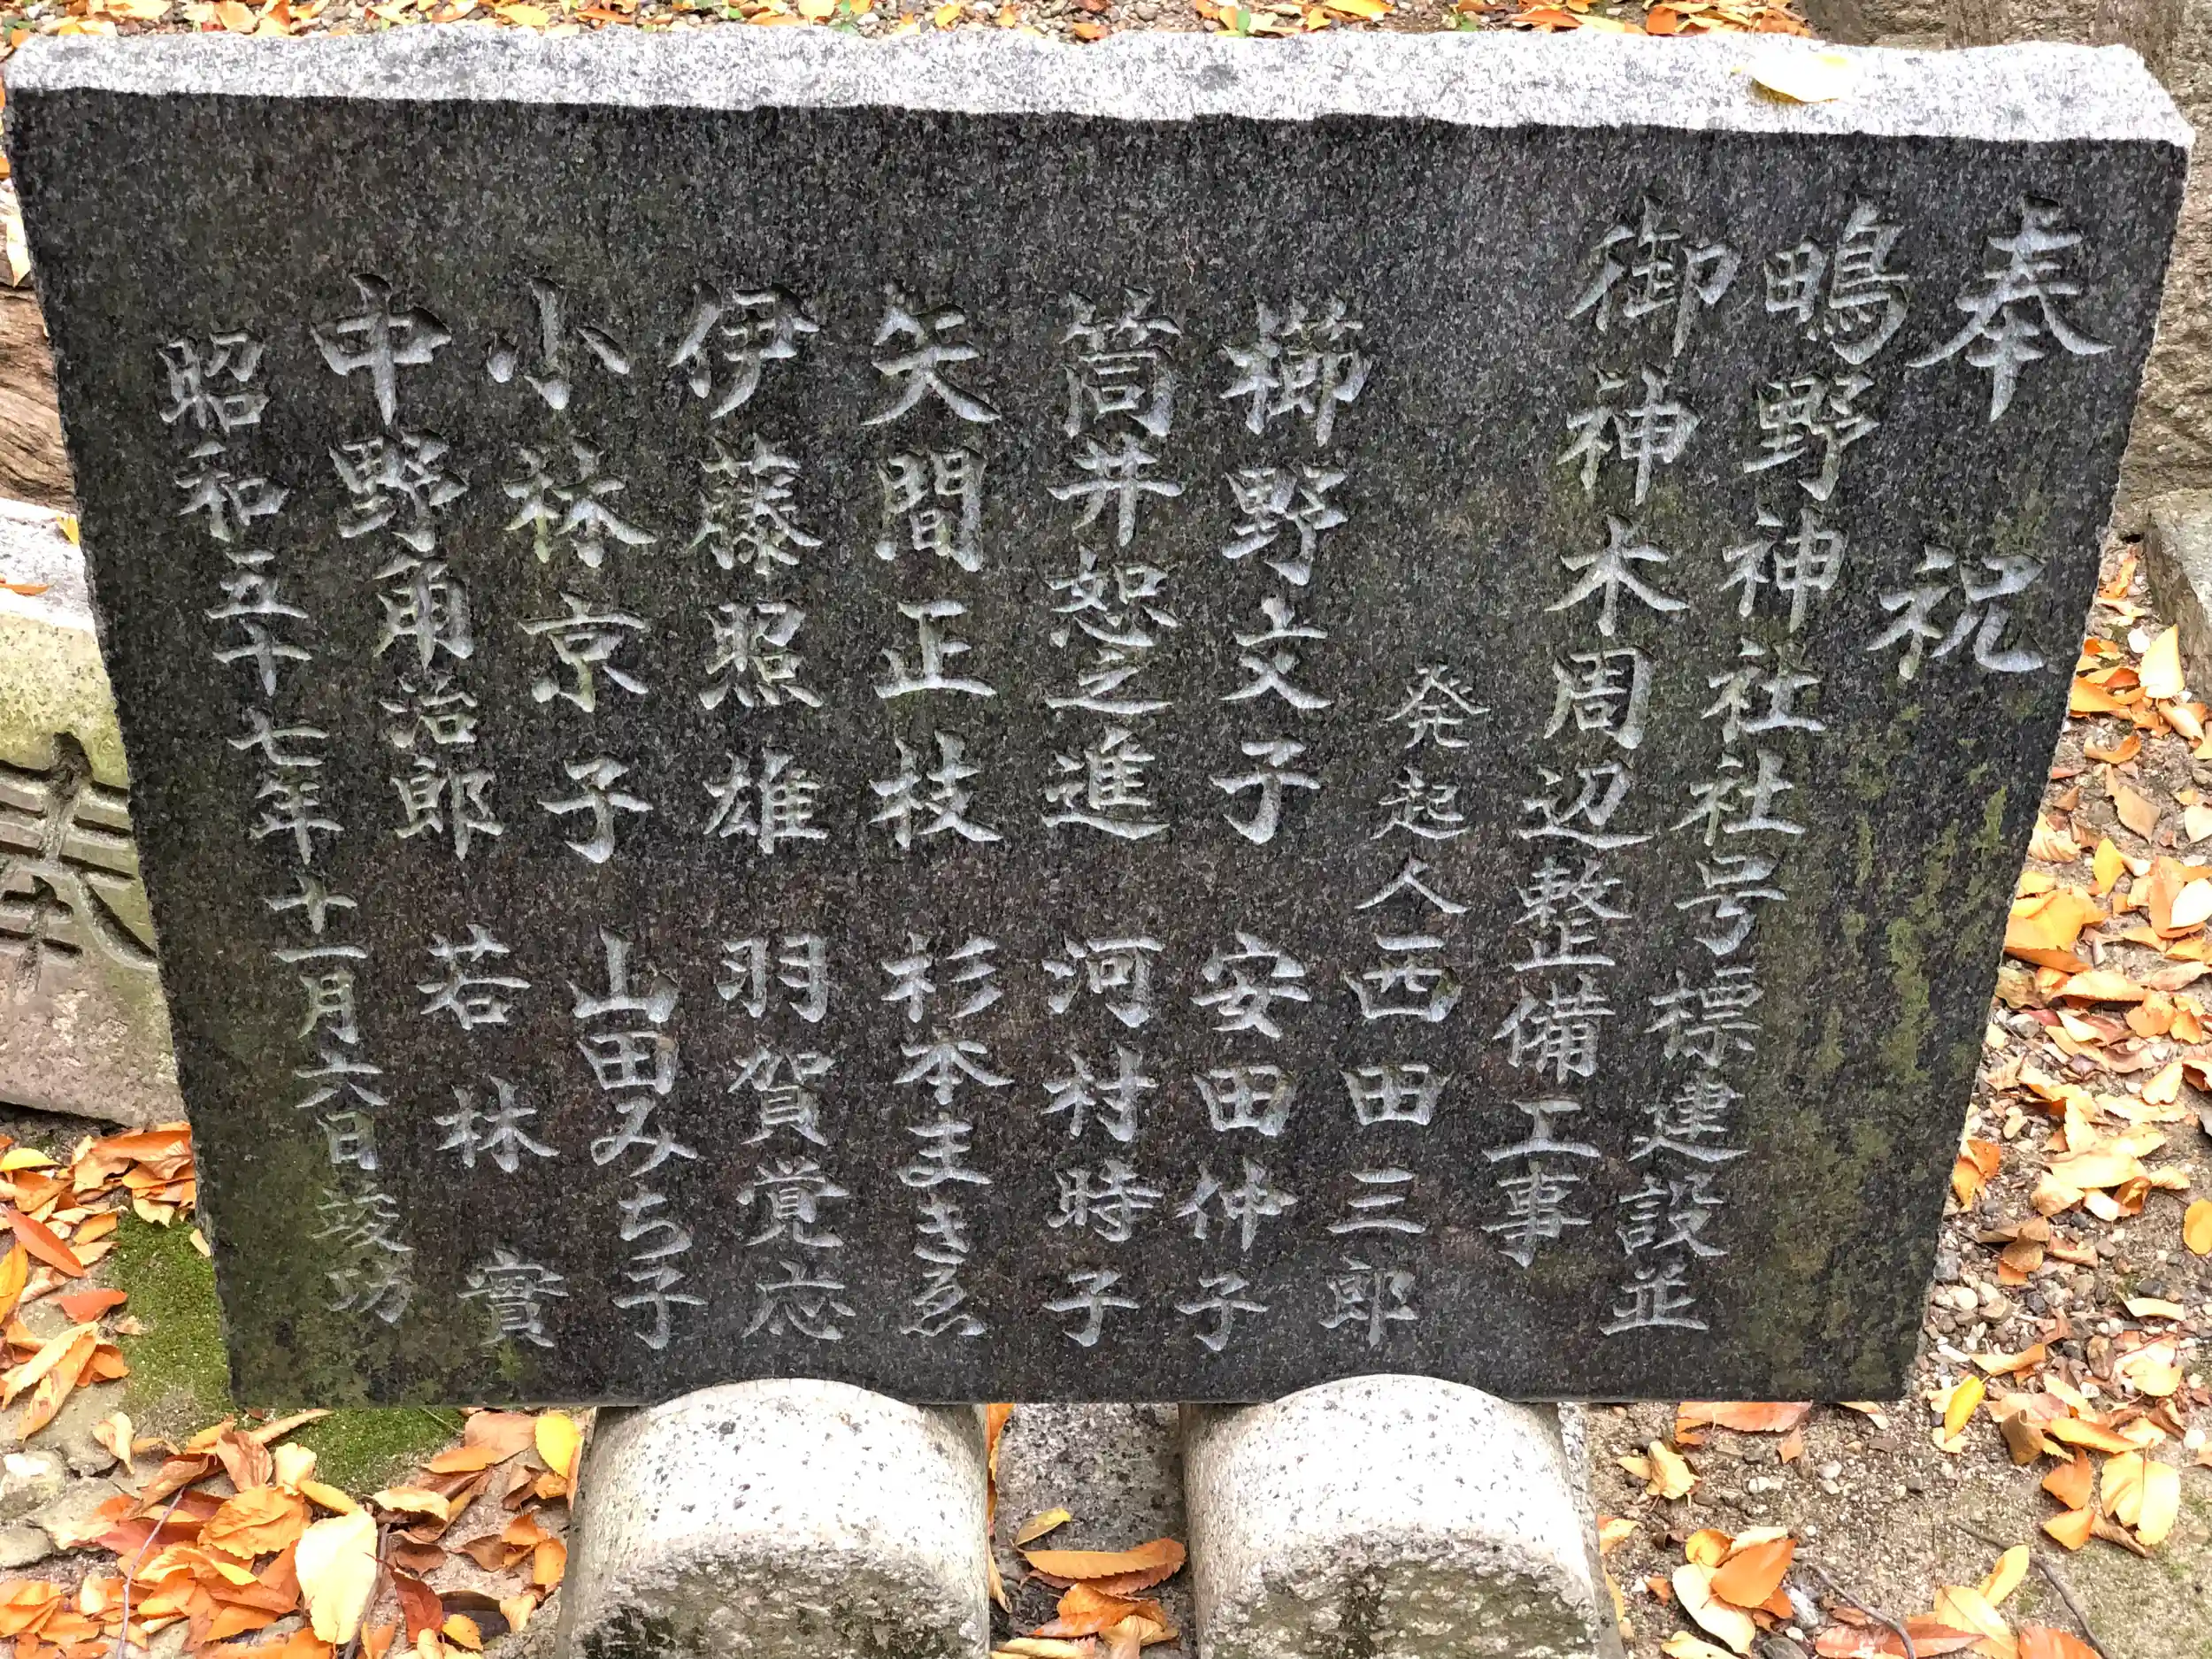 奉祝
鴫野神社社号標建設並
御神木周辺整備工事
発起人西田三郎
櫛野文子 安田仲子
筒井恕之進 河村時子
矢間正枝 杉本まきゑ
伊藤照雄 羽賀覚応
小林京子 山田みち子
中野角治郎 若林實
昭和五十七年十一月六日竣功
奉